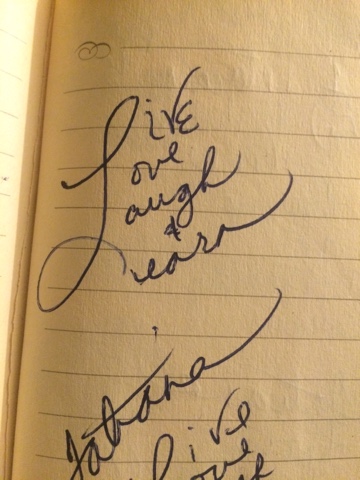 LiVE
Love
Laugh
&
Learn
Tatiana
Live
Love